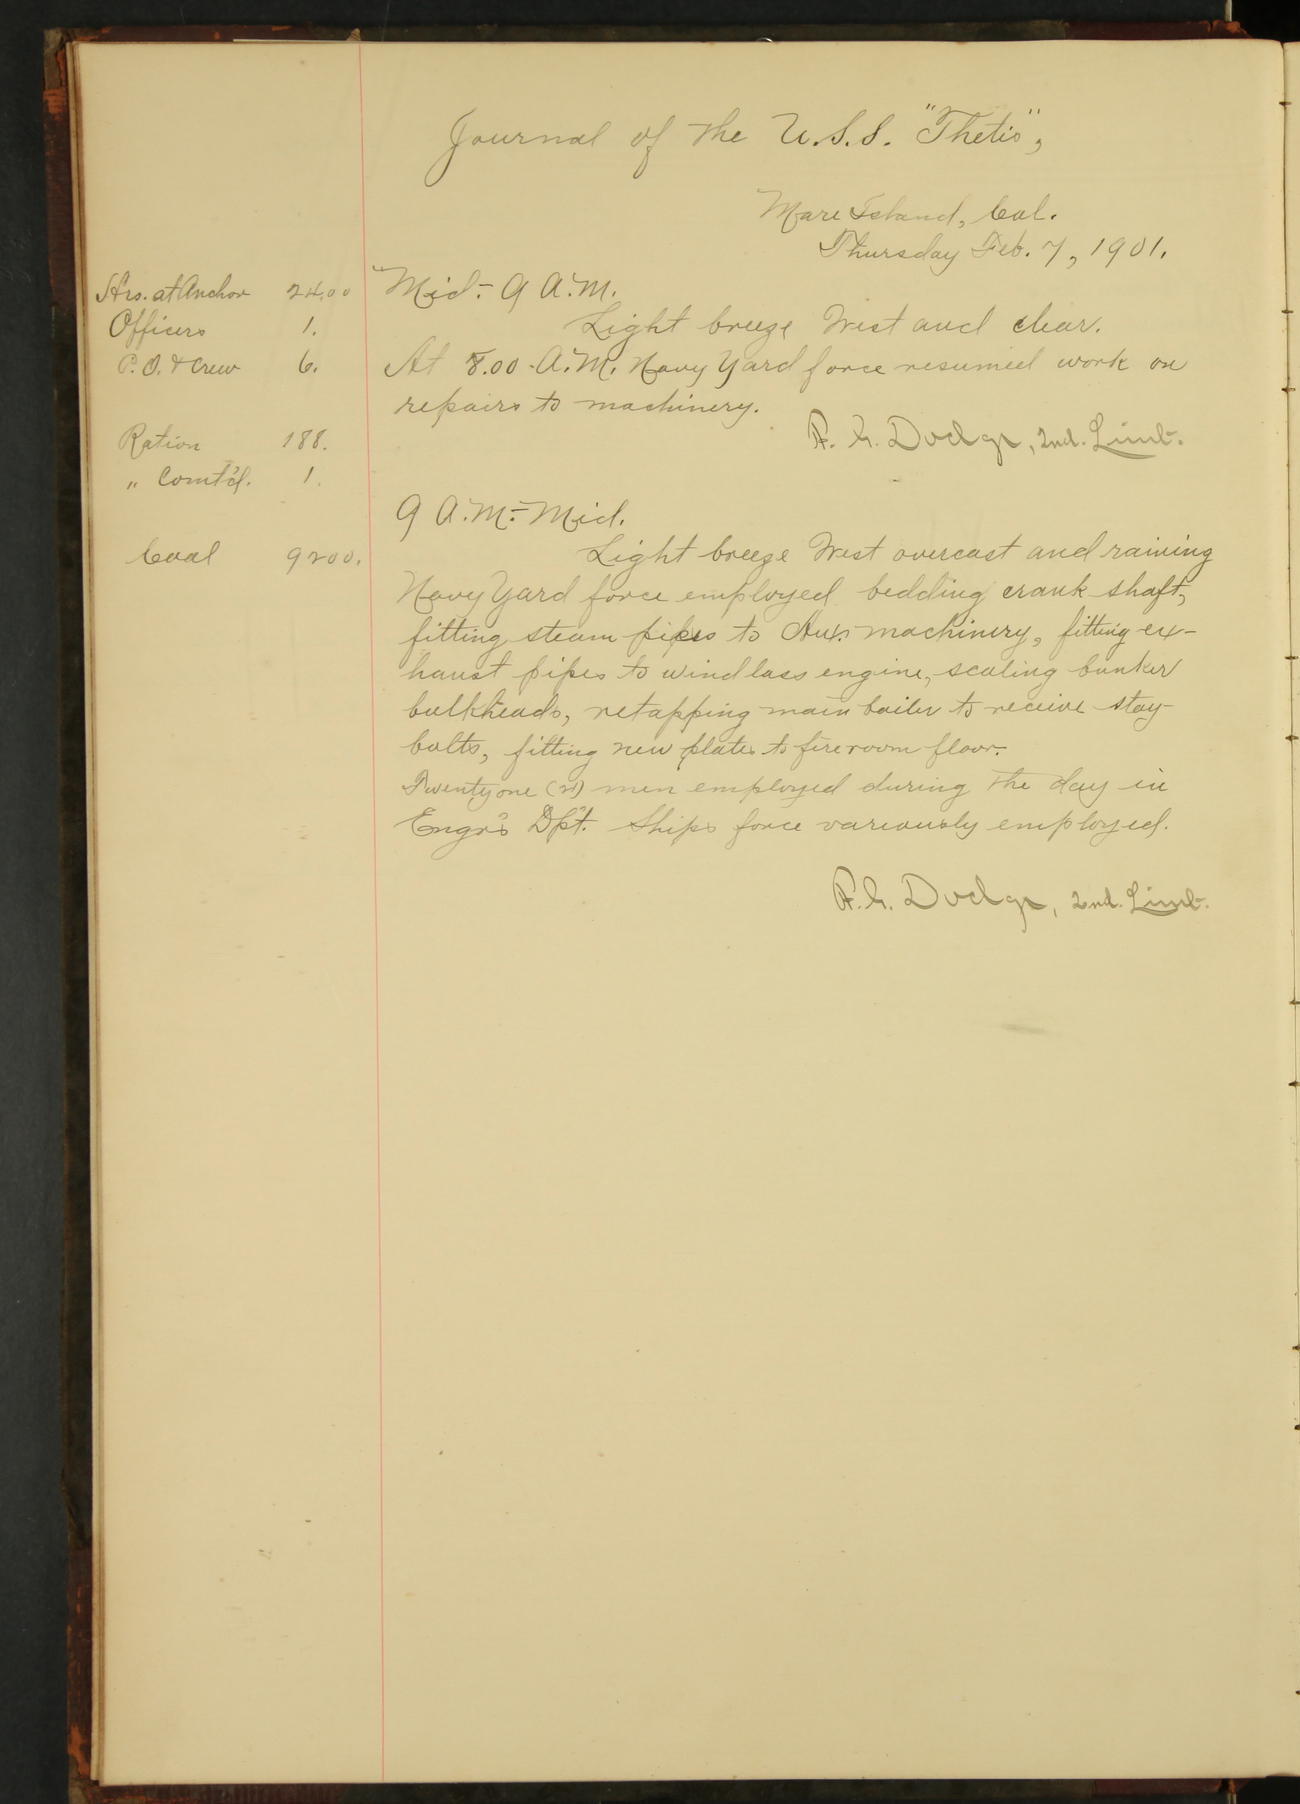 Journal of the U.S.S. "Thetis",
Mare Island, Cal.
Thursday Feb. 7, 1901.
Hrs. at Anchor 24.00
Officers 1.
P.O. & Crew 6.
Ration 188.
" Comt'd. 1.
Coal 9200.
Mid.- 9 A.M.
Light breeze West and clear.
At 8.00 A.M. Navy Yard force resumed work on
repairs to machinery.
Dodge, 2nd. Lieut.
9 A.M.- Mid.
Light breeze West overcast and raining
Navy Yard force employed bedding crank shaft,
fitting steam pipes to Aux. machinery, fitting ex-
haust pipes to windlass engine, scaling bunker
bulkheads, retapping main boiler to receive stay-
bolts, fitting new plates to fireroom floor.
Twenty one (21) men employed during the day in
Engr's Dpt. Ships force variously employed.
Dodge, 2nd. Lieut.